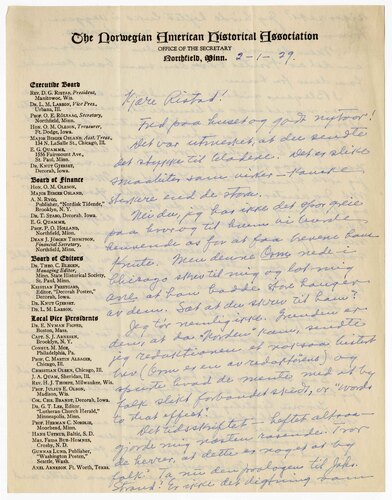 The Norwegian American Historical Association
OFFICE OF THE SECRETARY
Northfield, Minn. 2-1-29.
Executive Board
REV. D. G. RISTAD, President,
Manitowoc, Wis.
DR. L. M. LARSON, Vice Pres.,
Urbana, Ill.
PROF. O. E. RÖLVAAG, Secretary,
Northfield, Minn.
HON. O. M. OLESON, Treasurer,
Ft. Dodge, Iowa.
MAJOR BIRGER OSLAND, Asst. Treas.
134 N. LaSalle St., Chicago, Ill.
E. G. QUAMME,
1556 Fairmount Ave.,
St. Paul, Minn.
DR. KNUT GJERSET,
Decorah, Iowa.
Board of Finance
HON. O. M. OLESON,
MAJOR BIRGER OSLAND,
A. N. RYGG,
Publisher, "Nordisk Tidende",
Brooklyn, N. Y.
DR. T. STABO, Decorah, Iowa.
E. G. QUAMME,
PROF. P. O. HOLLAND,
Northfield, Minn.
DEAN J. JÖRGEN THOMPSON,
Financial Secretary,
Northfield, Minn.
Board of Editors
DR. THEO. C. BLEGEN,
Managing Editor,
Minn. State Historical Society,
St. Paul, Minn.
KRISTIAN PRESTGARD,
Editor, "Decorah Posten,"
Decorah, Iowa.
DR. KNUT GJERSET
DR. L. M. LARSON.
Local Vice Presidents
DR. E. NYMAN FIGVED,
Boston, Mass.
CAPT. S. J. ARNESEN,
Brooklyn, N. Y.
CONSUL M. MOE,
Philadelphia, Pa.
PROF. C. MARTIN ALSAGER,
Chicago, Ill.
CHRISTIAN OLSEN, Chicago, Ill.
J. A. QUAM, Sheridan, Ill.
REV. H. J. THORPE, Milwaukee, Wis.
PROF. JULIUS E. OLSON,
Madison, Wis.
COL. CHR. BRANDT, Decorah, Iowa.
DR. G. T. LEE, Editor,
"Lutheran Church Herald,"
Minneapolis, Minn.
PROF. HERMAN C. NORDLIE,
Moorhead, Minn.
HANS USTRUD, Baltic, S. D.
MRS. FRIDA BUE-HOMNES,
Crosby, N. D.
GUNNAR LUND, Publisher,
"Washington Posten",
Seattle, Wash.
AXEL ARNESON, Ft. Worth, Texas.
Kjære Ristad!
Fred paa huset og godt nytaar!
Det var utmerket, at du sendte
det stykke til bladene. Det er slike
smaabiter som virker – kanske
sterkere end de store.
Nei du, jeg har ikke det
paa hvor og til hvem vi burde
henvende os for at faa brevene
Men denne Orm nede i
Chicago skrev til mig og lot mig
ane, at han hadde stor
av dem. Sæt at du skrev til ham?
Jeg tør nemlig ikke. Grunden er
den, at da "Norden" kom, sendte
jeg redaktionen et
brev (Orm er en av redaktørene) og
spurte hvad de mente med at by
folk slikt forbandet skvæt, or "words
to that effect".
Det tidsskriftet – heftet altsaa –
gjorde mig næsten rasende. Tror
de herrer, at dette er noget at by
folk? Ta nu den prologen til Johs.
Er ikke det digtning